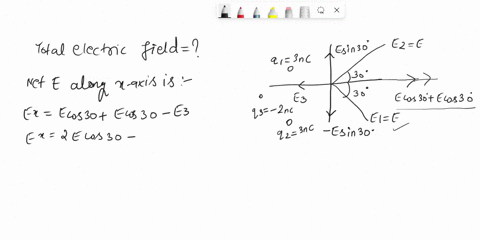 Total electric field=?
Net E along x-axis is :-
Ex = Ecos30 + Ecos30 - E3
Ex = 2Ecos30 -
Esin30°
E2=E
q1=3nC
30°
30°
E3
Ecos30°+Ecos30°
q3=-2nc
q2=3nC
E1=E
-Esin30°